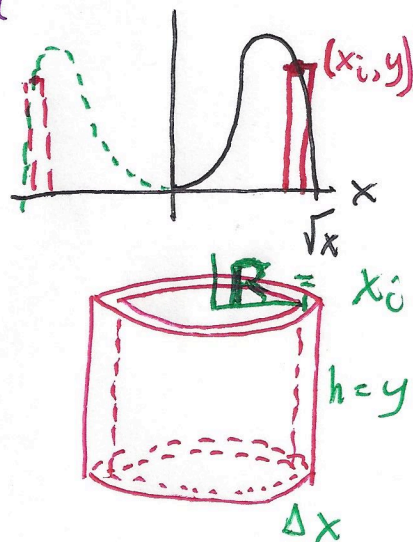 (xᵢ, y)
x
√x
R = xᵢ
h = y
Δx